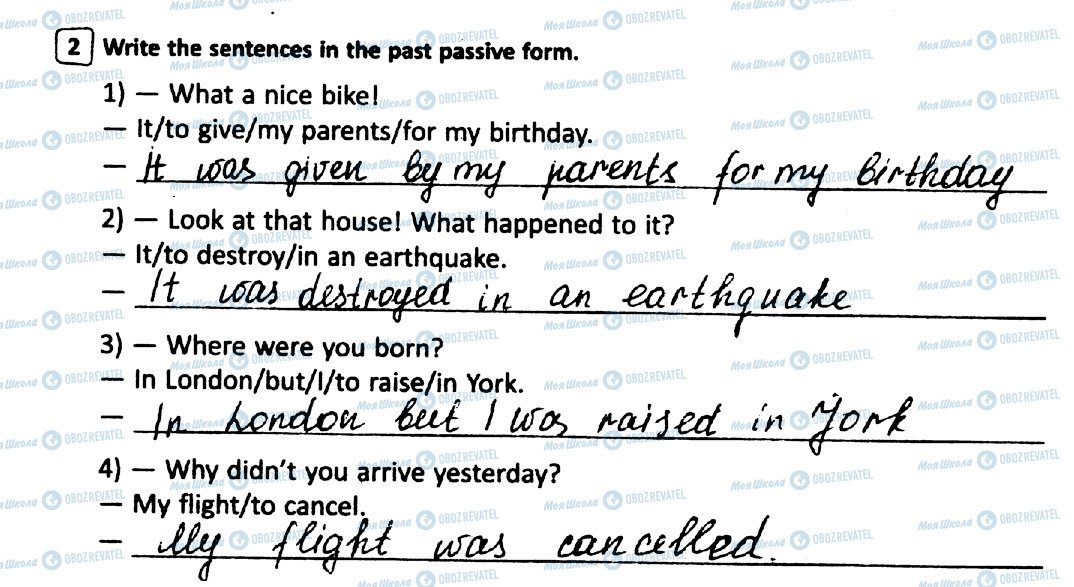 2 Write the sentences in the past passive form.
1) — What a nice bike!
— It/to give/my parents/for my birthday.
— It was given by my parents for my birthday
2) — Look at that house! What happened to it?
— It/to destroy/in an earthquake.
— It was destroyed in an earthquake
3) — Where were you born?
— In London/but/I/to raise/in York.
— In London but I was raised in York
4) — Why didn't you arrive yesterday?
— My flight/to cancel.
— My flight was cancelled.
Моя Школа OBOZREVATEL